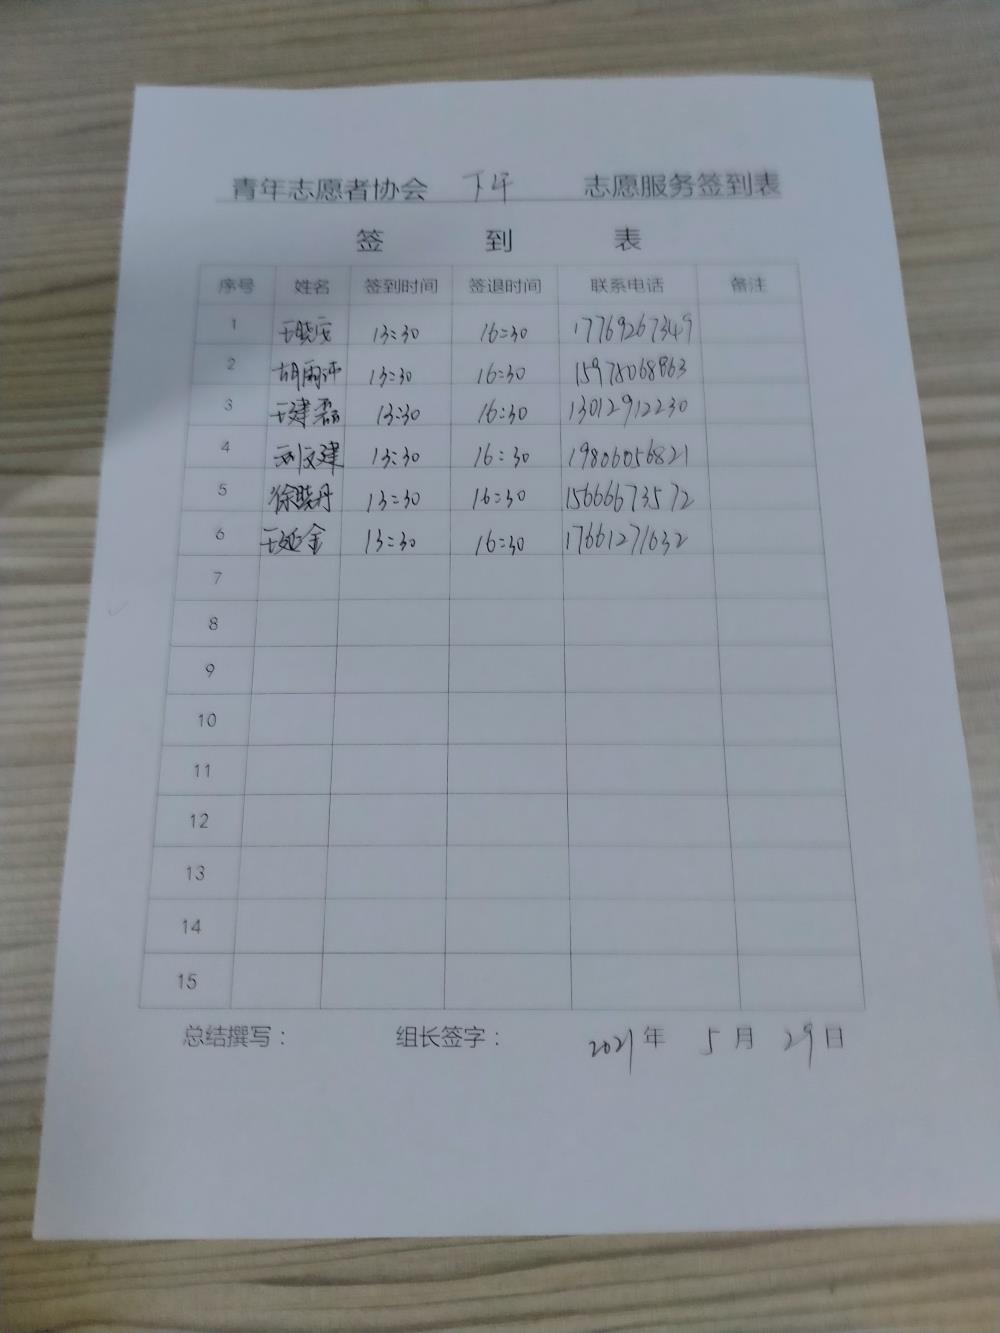 青年志愿者协会 下午 志愿服务签到表
签 到 表
序号 姓名 签到时间 签退时间 联系电话 备注
1 13:30 16:30 17769267349
2 胡雨评 13:30 16:30 15978068863
3 王建磊 13:30 16:30 13012912230
4 刘文建 13:30 16:30 19806056821
5 徐晓丹 13:30 16:30 15666673572
6 王延金 13:30 16:30 17661271632
7
8
9
10
11
12
13
14
15
总结撰写： 组长签字： 2021年 5月 29日